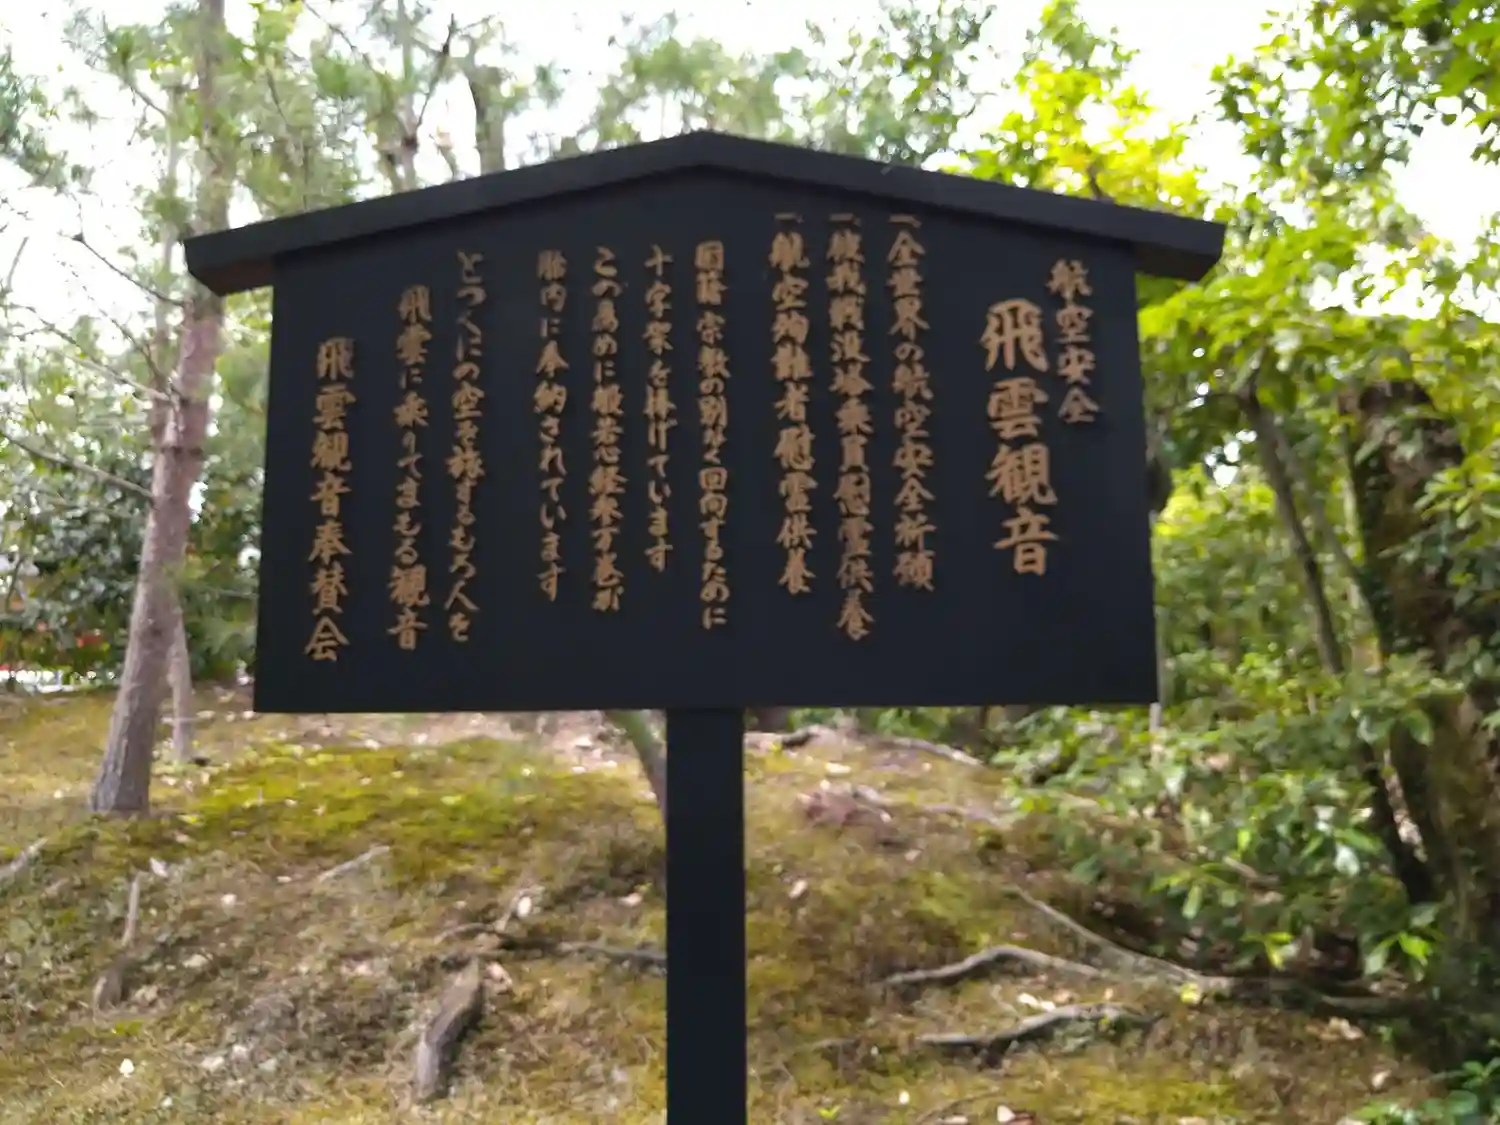 航空安全
飛雲観音
一、全世界の航空安全祈願
一、彼我戦没搭乗員慰霊供養
一、航空殉難者慰霊供養
国籍宗教の別なく回向するために
十字架を捧げています
この為めに般若心経参万巻が
胎内に奉納されています
とつくにの空を旅するもろ人を
飛雲に乗りてまもる観音
飛雲観音奉賛会